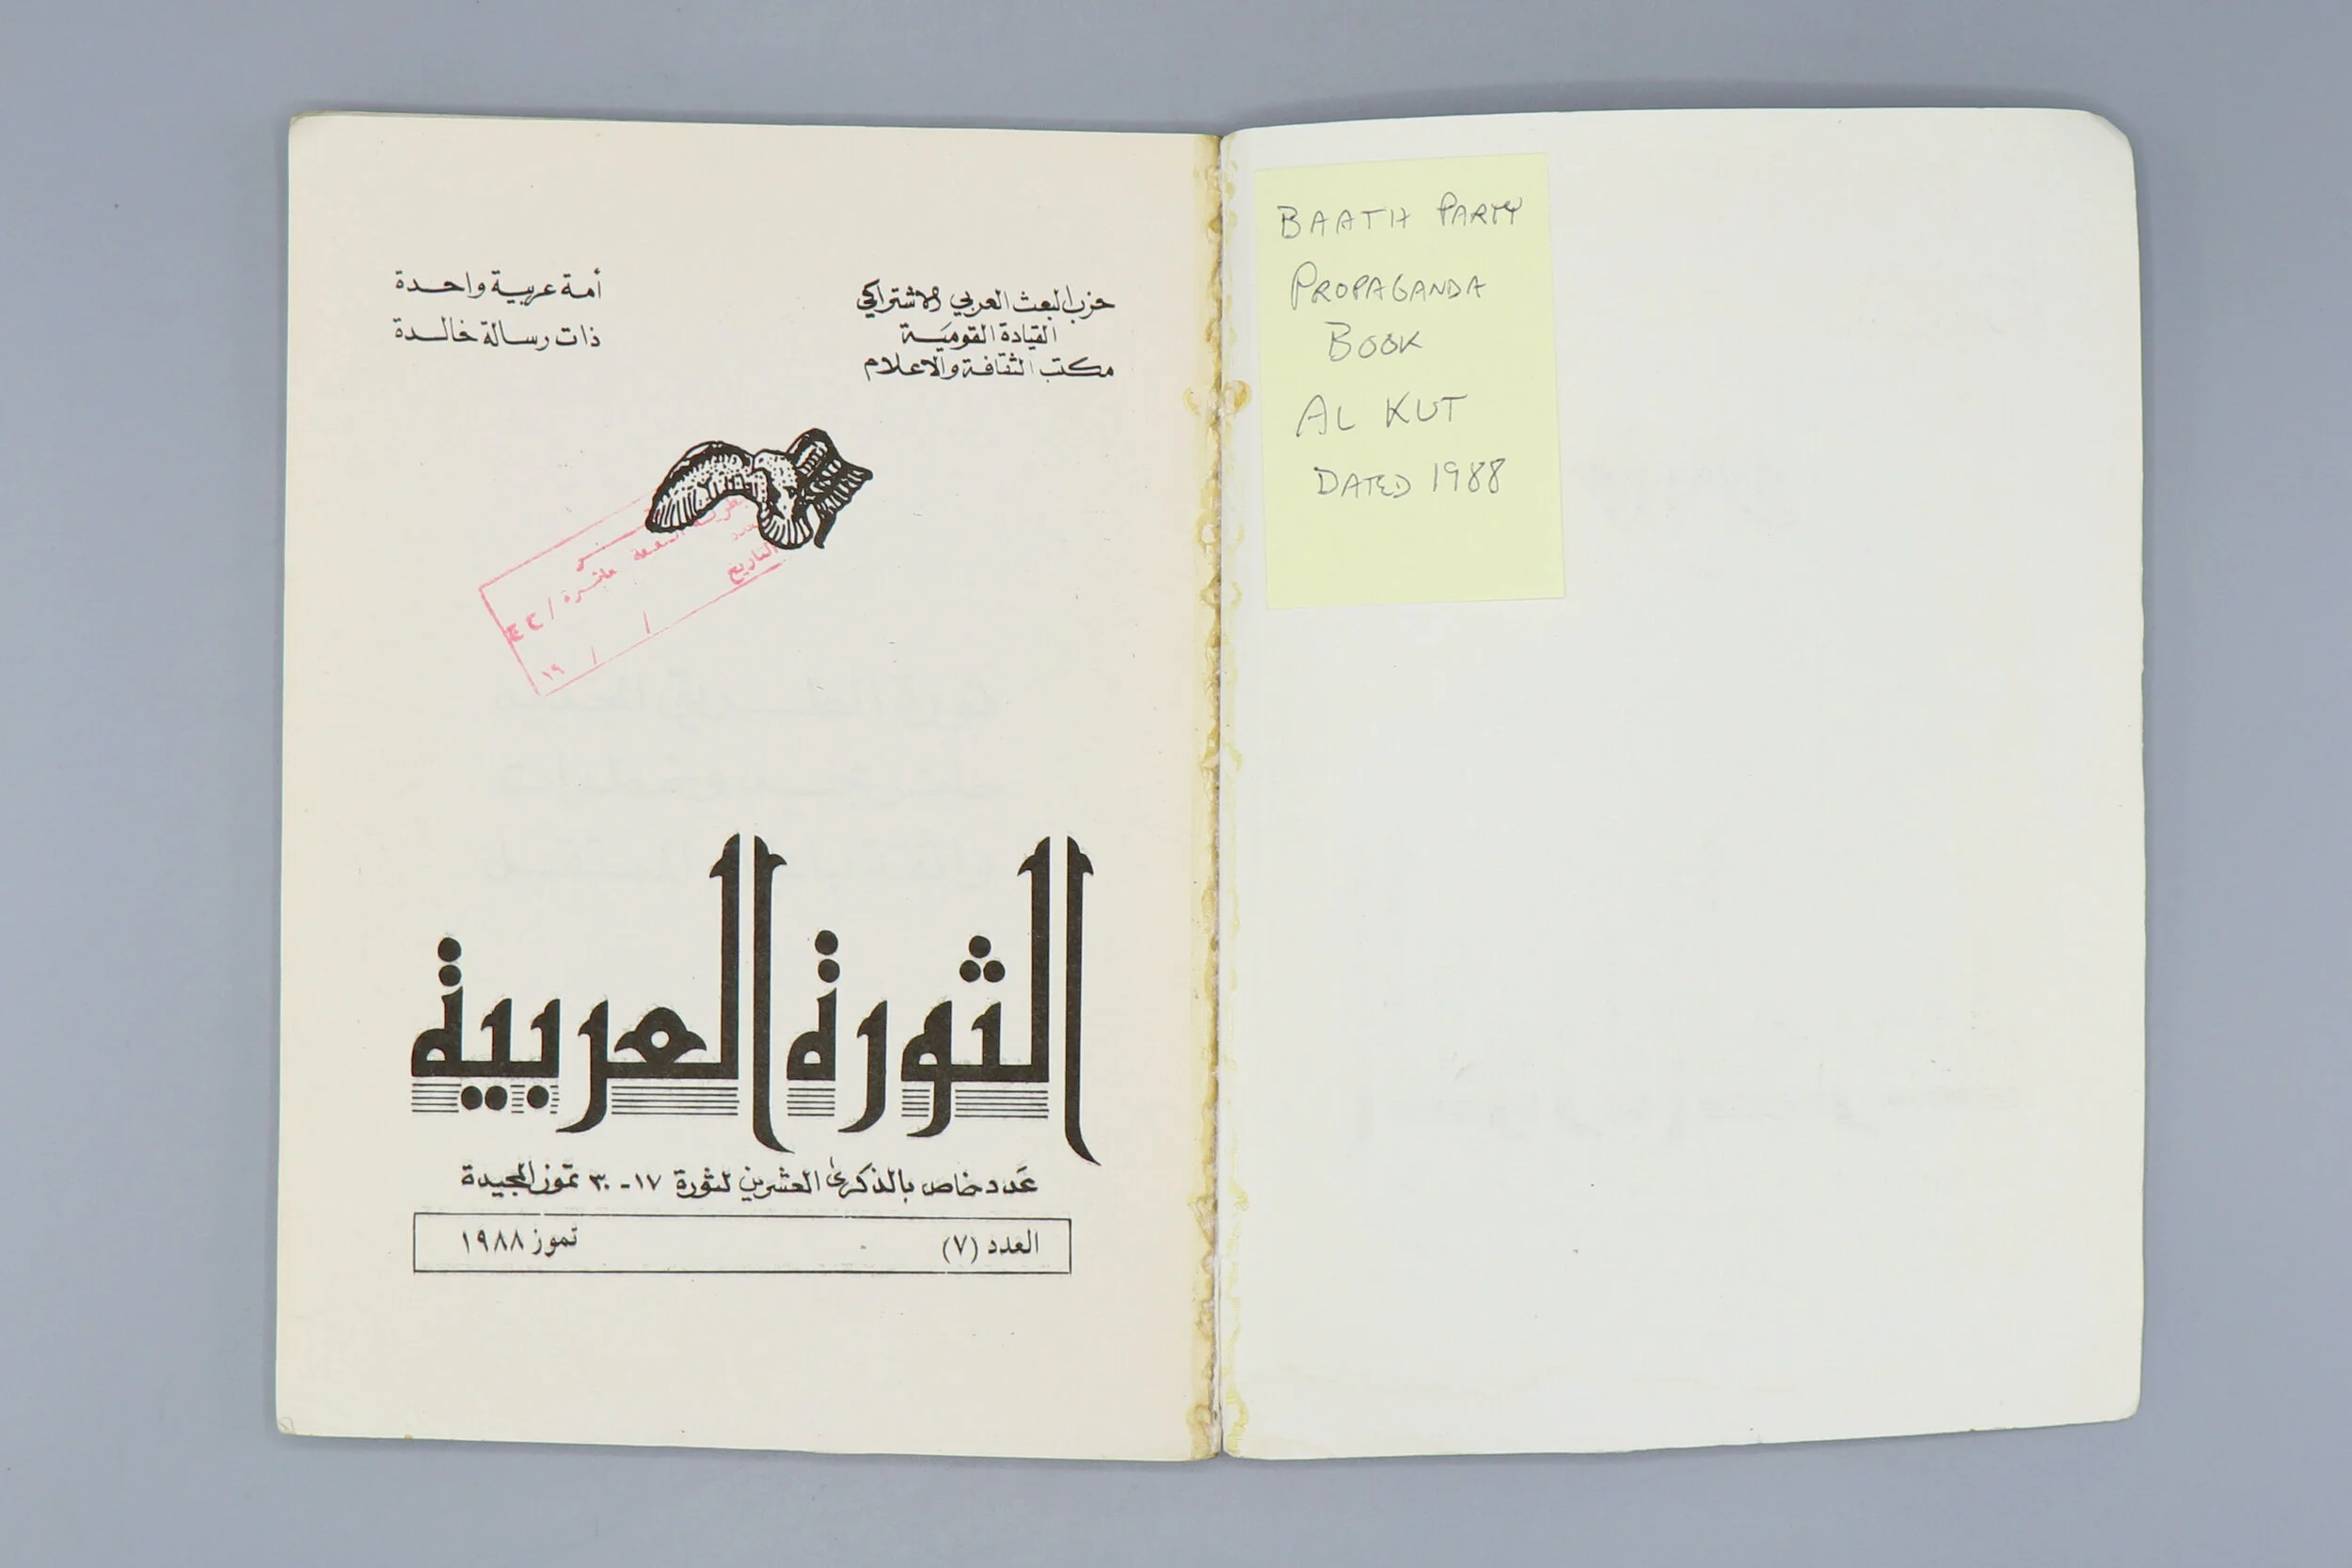 حزب البعث العربي الاشتراكي
القيادة القومية
مكتب الثقافة والاعلام
أمة عربية واحدة
ذات رسالة خالدة
التاريخ
/ / ١٩
الثورة العربية
عدد خاص بالذكرى العشرين لثورة ١٧ - ٣٠ تموز المجيدة
العدد (٧)
تموز ١٩٨٨
BAATH PARTY
PROPAGANDA
BOOK
AL KUT
DATED 1988